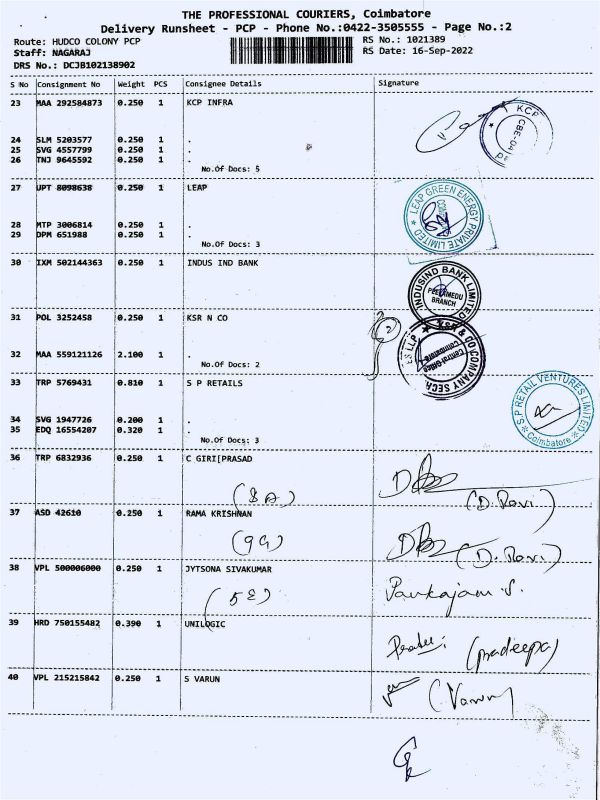 THE PROFESSIONAL COURIERS, Coimbatore
Delivery Runsheet - PCP - Phone No.:0422-3505555 - Page No.:2
Route: HUDCO COLONY PCP
RS No.: 1021389
Staff: NAGARAJ
RS Date: 16-Sep-2022
DRS No.: DCJB102138902
S No Consignment No Weight PCS Consignee Details Signature
23 MAA 292584873 0.250 1 KCP INFRA
KCP
CBE-04
24 SLM 5203577 0.250 1 .
25 SVG 4557799 0.250 1 .
26 TNJ 9645592 0.250 1 .
No.Of Docs: 5
27 UPT 8098638 0.250 1 LEAP
LEAP GREEN ENERGY PRIVATE LIMITED
28 MTP 3006814 0.250 1 .
29 DPM 651988 0.250 1 .
No.Of Docs: 3
30 IXM 502144363 0.250 1 INDUS IND BANK
INDUSIND BANK LIMITED
PEELAMEDU
BRANCH
31 POL 3252458 0.250 1 KSR N CO
KSR & CO COMPANY SECR
ES LLP
Central Office
Coimbatore
32 MAA 559121126 2.100 1 .
No.Of Docs: 2
33 TRP 5769431 0.810 1 S P RETAILS
S.P RETAIL VENTURES LIMITED
Coimbatore
34 SVG 1947726 0.200 1 .
35 EDQ 16554207 0.320 1 .
No.Of Docs: 3
36 TRP 6832936 0.250 1 C GIRI[PRASAD
(8A)
(D. Ravi)
37 ASD 42610 0.250 1 RAMA KRISHNAN
(9G)
(D. Ravi)
38 VPL 500006000 0.250 1 JYTSONA SIVAKUMAR
(5E)
Pankajam S.
39 HRD 750155482 0.390 1 UNILOGIC
(pradeepa)
40 VPL 215215842 0.250 1 S VARUN
(Varun)